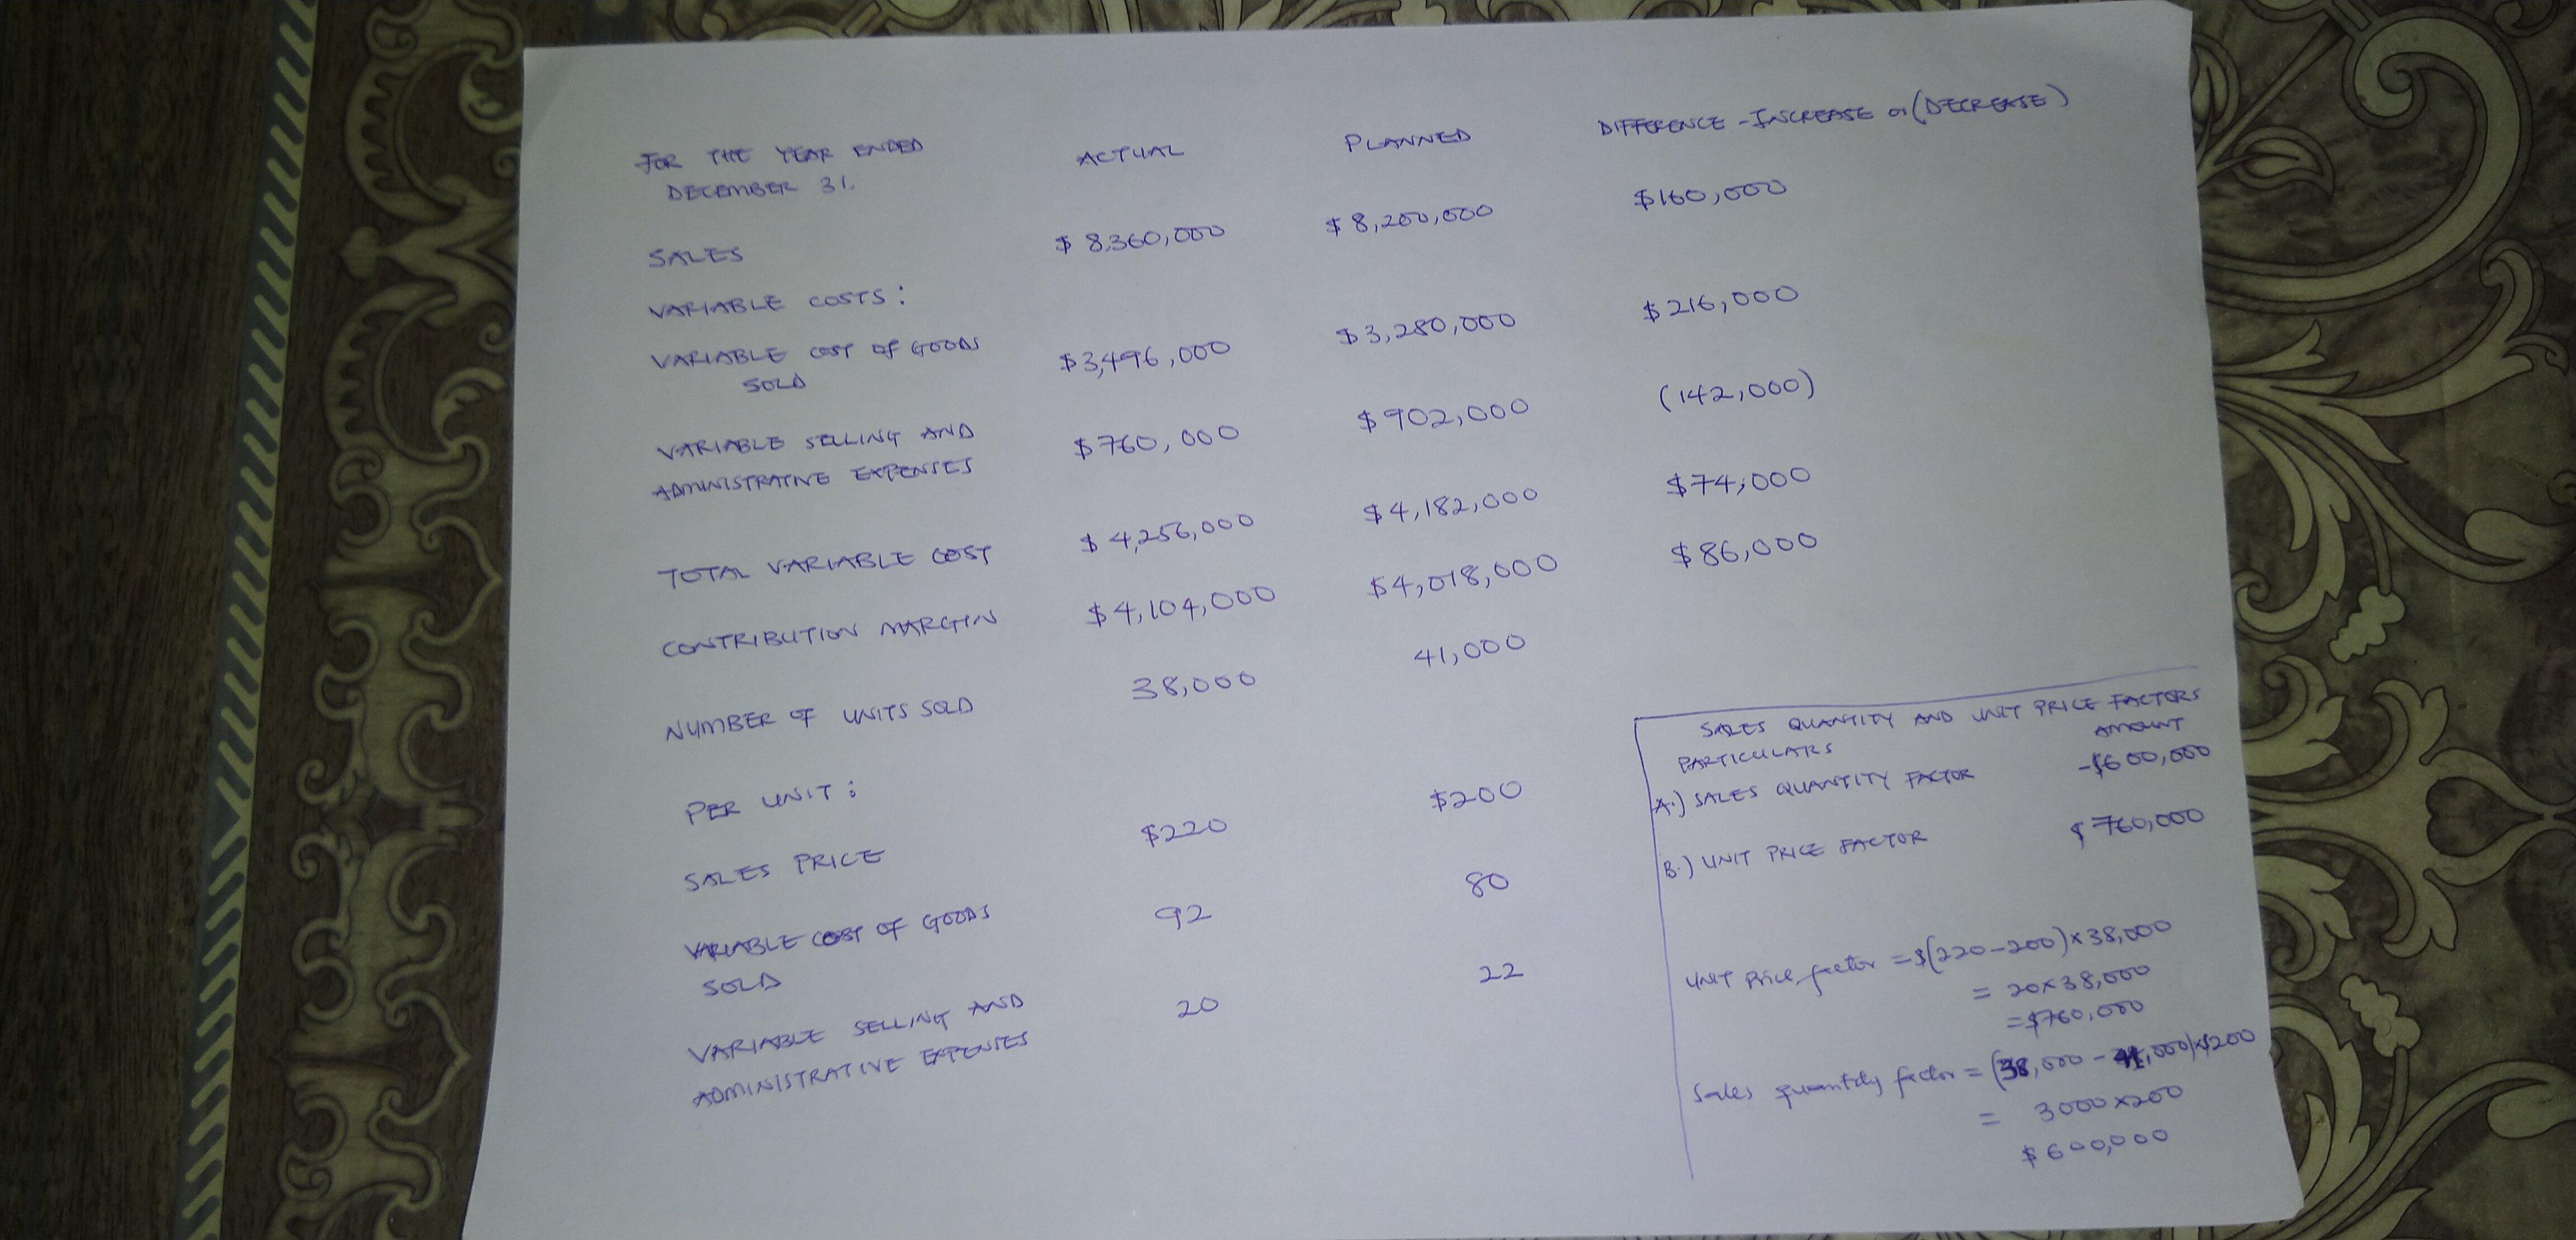 FOR THE YEAR ENDED DECEMBER 31. ACTUAL PLANNED DIFFERENCE - INCREASE or (DECREASE)
SALES $ 8,360,000 $ 8,200,000 $160,000
VARIABLE COSTS:
VARIABLE COST OF GOODS SOLD $3,496,000 $3,280,000 $216,000
VARIABLE SELLING AND ADMINISTRATIVE EXPENSES $760,000 $902,000 (142,000)
TOTAL VARIABLE COST $ 4,256,000 $4,182,000 $74,000
CONTRIBUTION MARGIN $4,104,000 $4,018,000 $86,000
NUMBER OF UNITS SOLD 38,000 41,000
PER UNIT:
SALES PRICE $220 $200
VARIABLE COST OF GOODS SOLD 92 80
VARIABLE SELLING AND ADMINISTRATIVE EXPENSES 20 22
SALES QUANTITY AND UNIT PRICE FACTORS
PARTICULARS AMOUNT
A.) SALES QUANTITY FACTOR -$600,000
B.) UNIT PRICE FACTOR $760,000
UNIT Price factor = $(220-200)x38,000
= 20x38,000
=$760,000
Sales quantity factor = (38,000 - 41,000)x$200
= 3000x200
$600,000